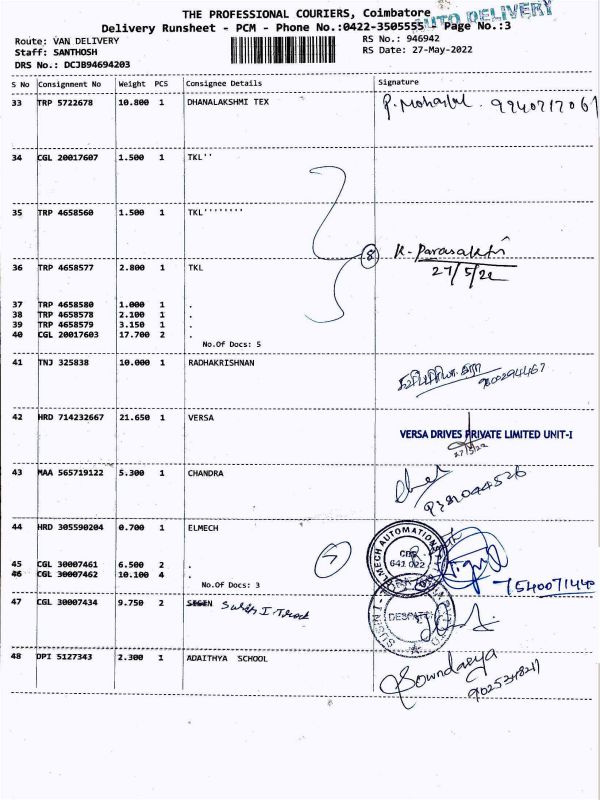 THE PROFESSIONAL COURIERS, Coimbatore
AUTO DELIVERY
Delivery Runsheet - PCM - Phone No.:0422-3505555 Page No.:3
Route: VAN DELIVERY
RS No.: 946942
Staff: SANTHOSH
RS Date: 27-May-2022
DRS No.: DCJB94694203
S No Consignment No Weight PCS Consignee Details Signature
33 TRP 5722678 10.800 1 DHANALAKSHMI TEX
9940717061
34 CGL 20017607 1.500 1 TKL''
35 TRP 4658560 1.500 1 TKL''''''''
8 K. Parasakthi
27/5/22
36 TRP 4658577 2.800 1 TKL
37 TRP 4658580 1.000 1 .
38 TRP 4658578 2.100 1 .
39 TRP 4658579 3.150 1 .
40 CGL 20017603 17.700 2 .
No.Of Docs: 5
41 TNJ 325838 10.000 1 RADHAKRISHNAN
42 HRD 714232667 21.650 1 VERSA
VERSA DRIVES PRIVATE LIMITED UNIT-I
27/5/22
43 MAA 565719122 5.300 1 CHANDRA
44 HRD 305590204 0.700 1 ELMECH
ELMECH AUTOMATIONS
CBE
641 022
45 CGL 30007461 6.500 2 .
46 CGL 30007462 10.100 4 .
No.Of Docs: 3
7540071440
47 CGL 30007434 9.750 2
DESPATCH
48 DPI 5127343 2.300 1 ADAITHYA SCHOOL
Soundarya